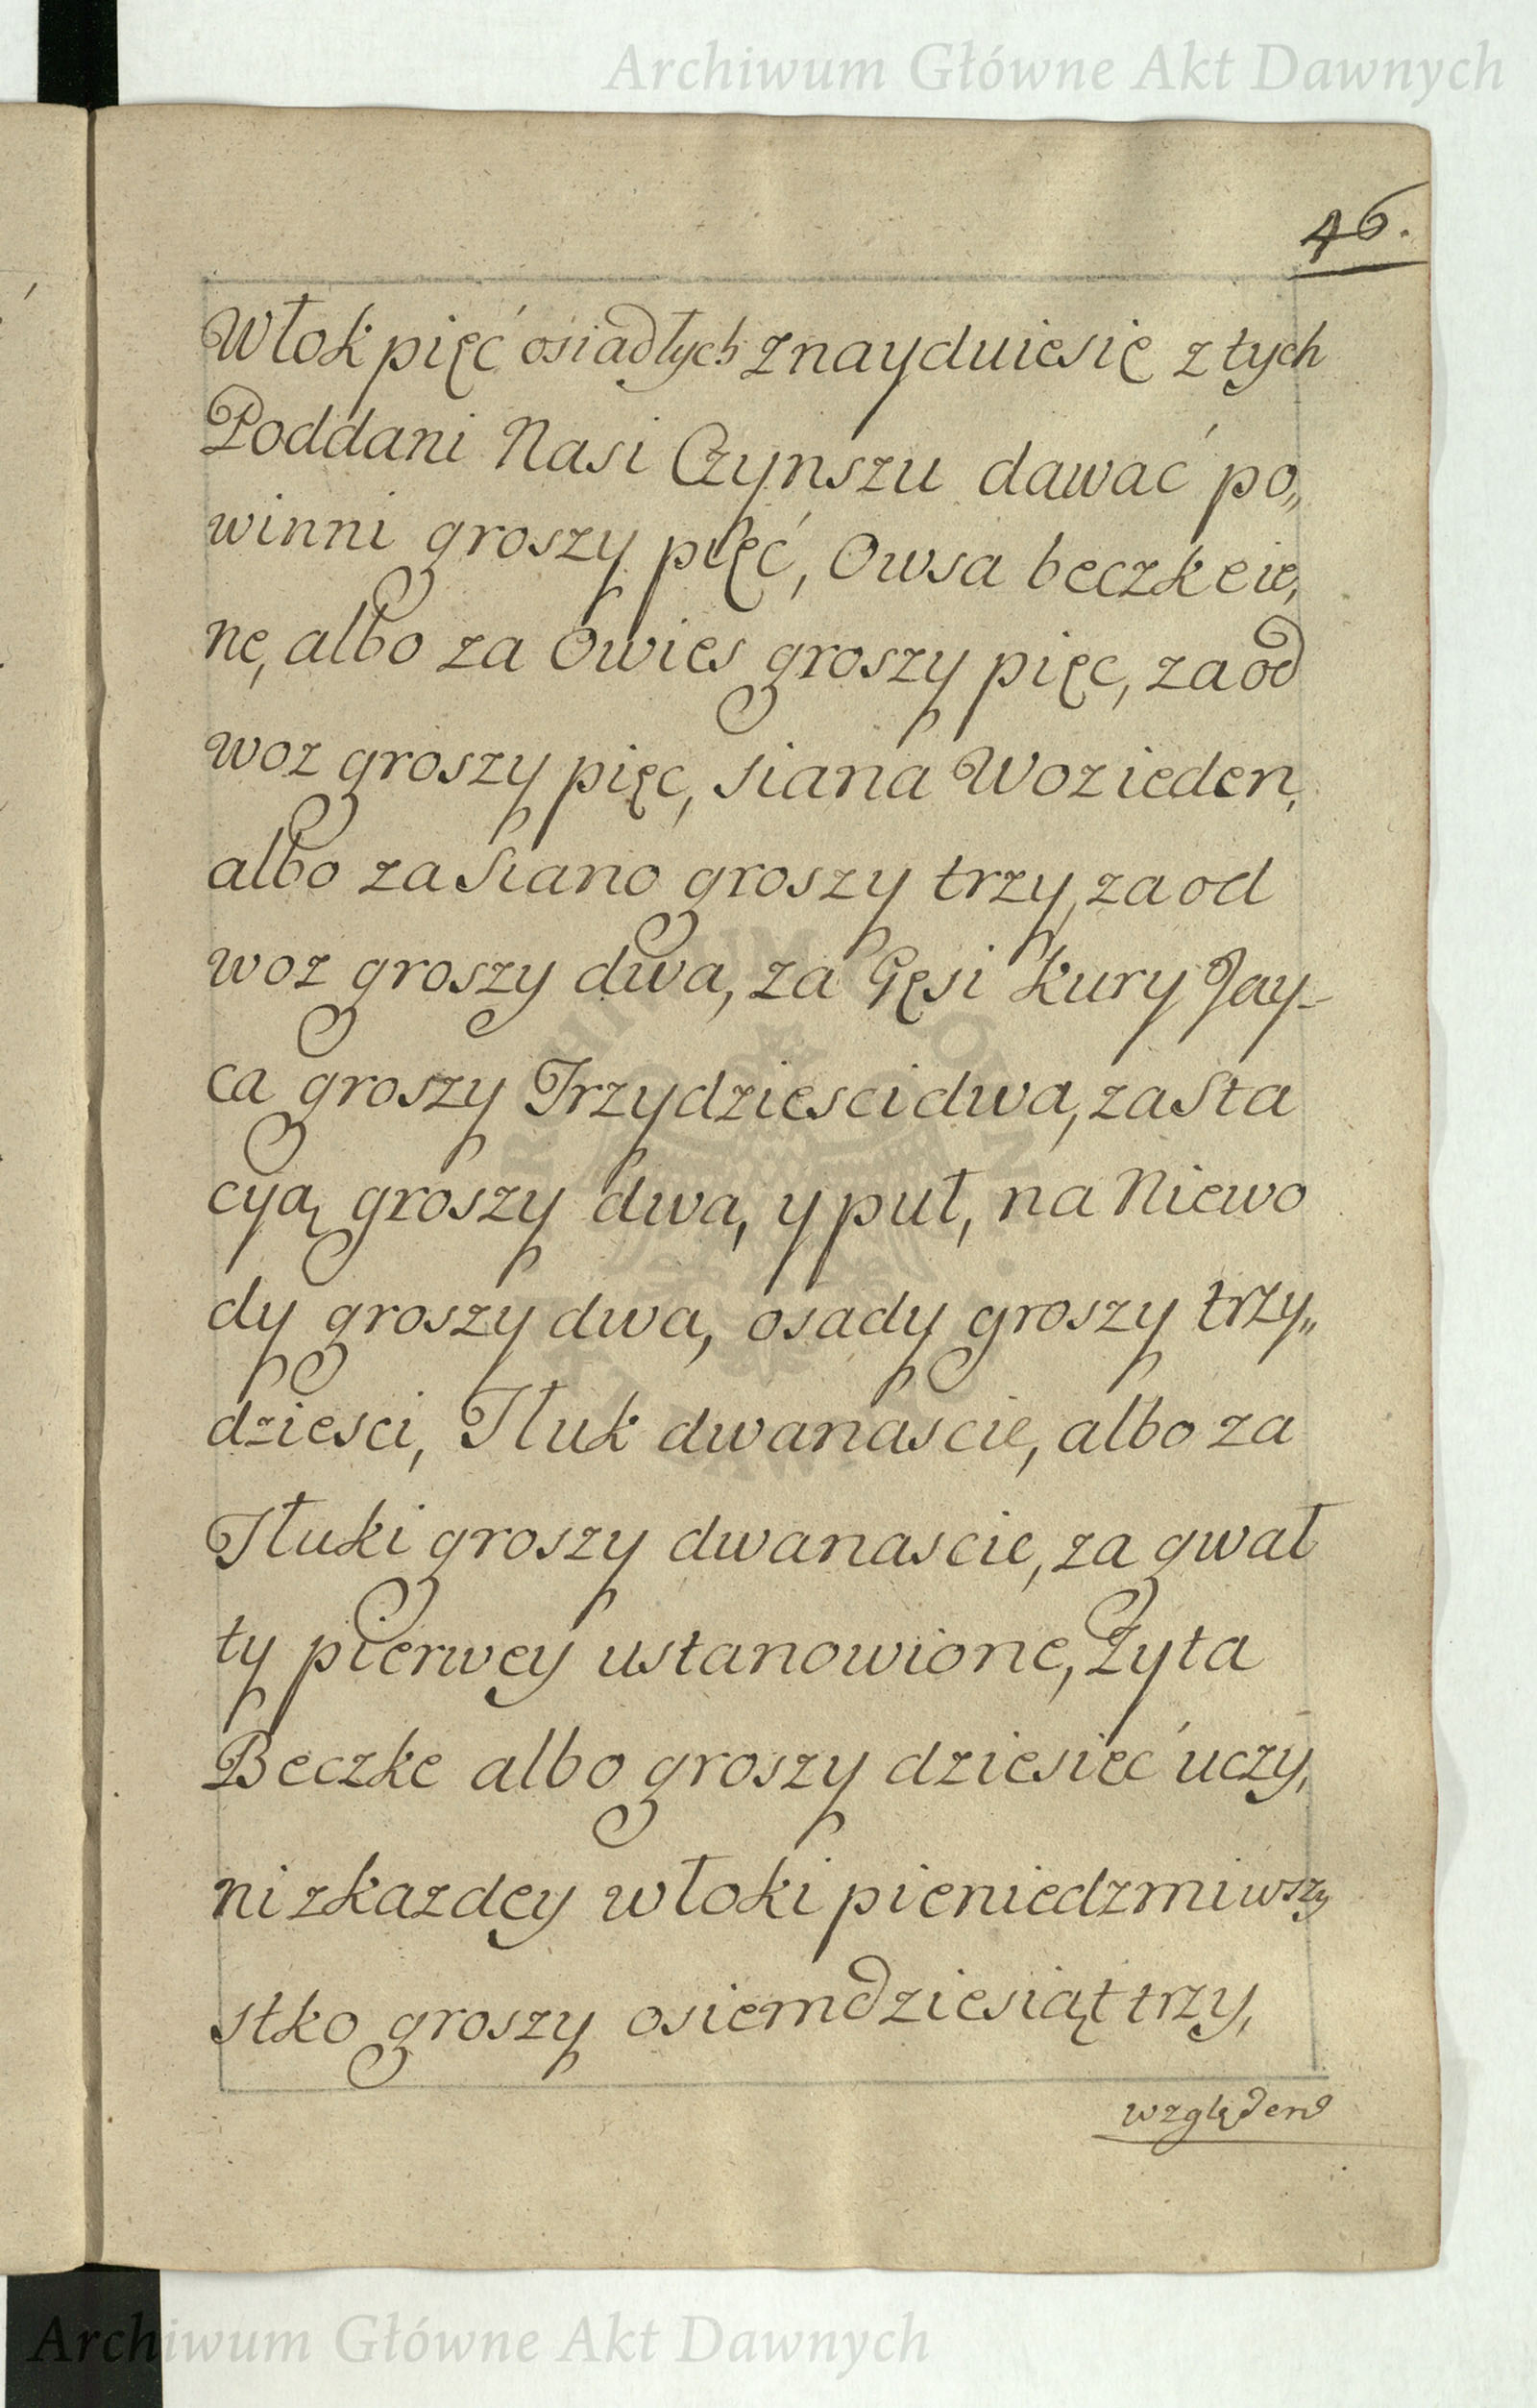 Archiwum Główne Akt Dawnych
46.
Włok pięć osiadłych znayduie się z tych
Poddani Nasi Czynszu dawać po„
winni groszy pięć, Owsa beczke ie,
nę, albo za Owies groszy pięc, za od
woz groszy pięc, siana Woz ieden,
albo za Siano groszy trzy, za od
woz groszy dwa, za Gęsi kury Jay-
ca groszy Trzydziesci dwa, za Sta
cyą groszy dwa, y puł, na Niewo
dy groszy dwa, osady groszy trzy„
dziesci, Tłuk dwanascie, albo za
Tłuki groszy dwanascie, za gwał
ty pierwey ustanowione, Żyta
Beczke albo groszy dziesieć uczy,
ni z kazdey włoki pieniedzmi wszy
stko groszy osiemdziesiąt trzy,
względem
Archiwum Główne Akt Dawnych